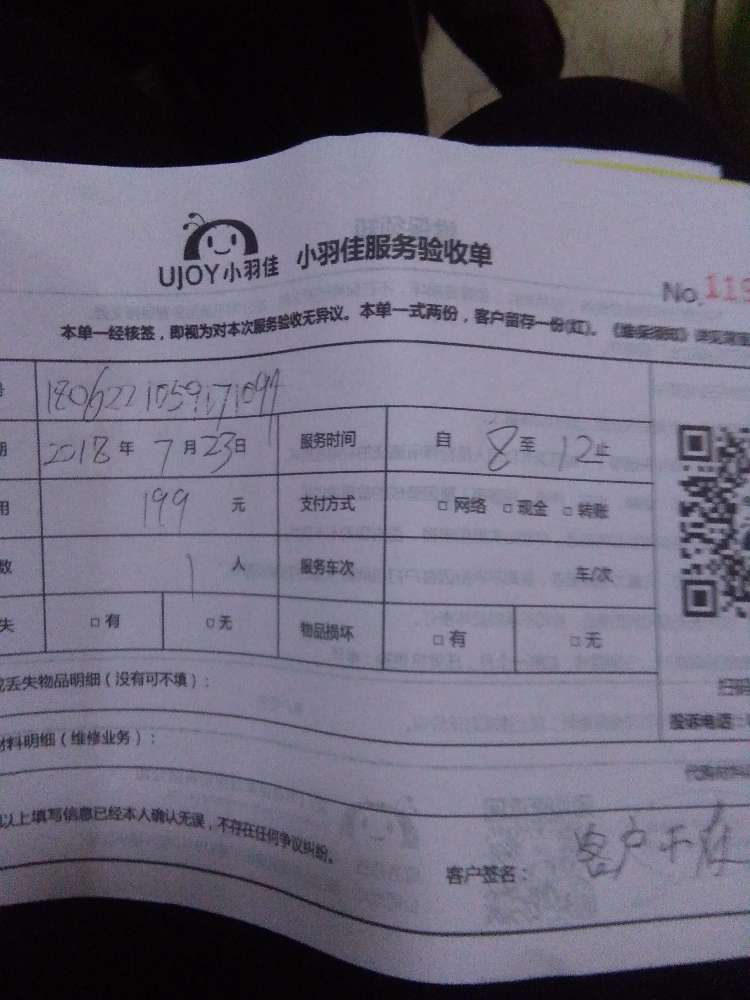 UJOY小羽佳 小羽佳服务验收单
No.119
本单一经核签，即视为对本次服务验收无异议。本单一式两份，客户留存一份(红)。《维保须知》详见背面
号 180622105917109
期 2018年7月23日 服务时间 自8至12止
用 199元 支付方式 □网络 □现金 □转账
数 1人 服务车次 车/次
失 □有 □无 物品损坏 □有 □无
丢失物品明细（没有可不填）：
扫码
投诉电话：
材料明细（维修业务）：
代购材料
以上填写信息已经本人确认无误，不存在任何争议纠纷。
客户签名：客户不在